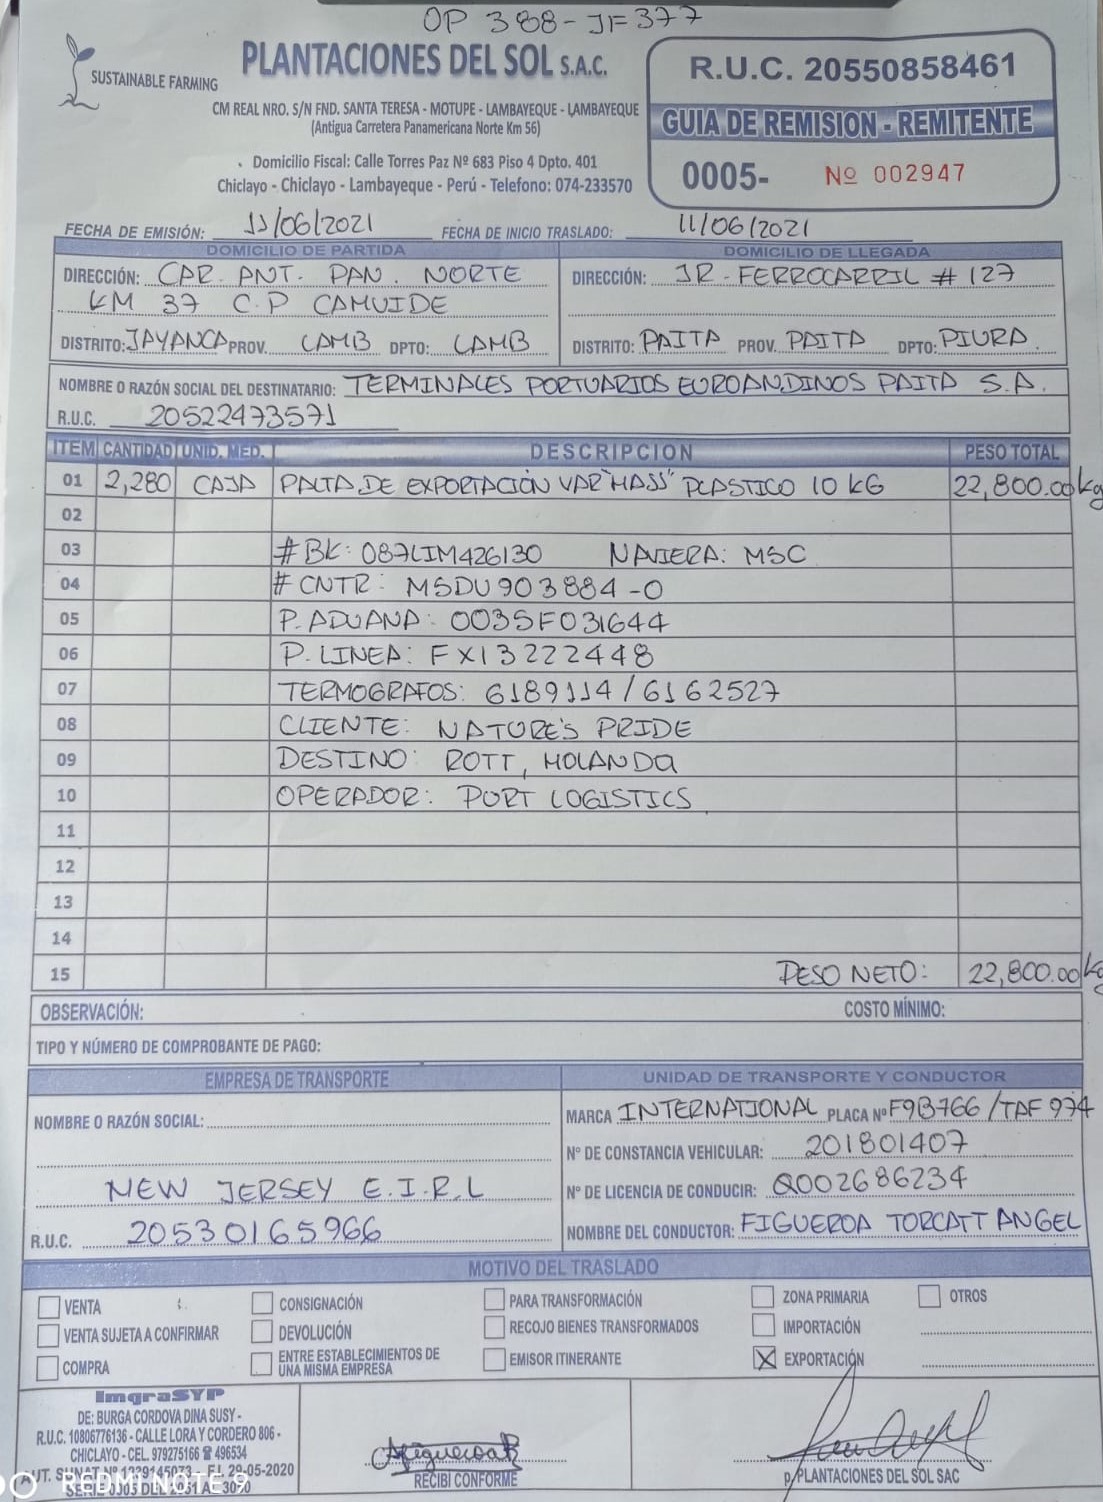 OP 388-JF377
SUSTAINABLE FARMING
PLANTACIONES DEL SOL S.A.C.
CM REAL NRO. S/N FND. SANTA TERESA - MOTUPE - LAMBAYEQUE - LAMBAYEQUE
(Antigua Carretera Panamericana Norte Km 56)
Domicilio Fiscal: Calle Torres Paz Nº 683 Piso 4 Dpto. 401
Chiclayo - Chiclayo - Lambayeque - Perú - Telefono: 074-233570
R.U.C. 20550858461
GUIA DE REMISION - REMITENTE
0005- Nº 002947
FECHA DE EMISIÓN: 11/06/2021 FECHA DE INICIO TRASLADO: 11/06/2021
DOMICILIO DE PARTIDA
DIRECCIÓN: CAR. ANT. PAN. NORTE
KM 37 C.P CAHUIDE
DISTRITO: JAYANCA PROV. LAMB DPTO: LAMB
DOMICILIO DE LLEGADA
DIRECCIÓN: JR. FERROCARRIL # 127
DISTRITO: PAITA PROV. PAITA DPTO: PIURA.
NOMBRE O RAZÓN SOCIAL DEL DESTINATARIO: TERMINALES PORTUARIOS EUROANDINOS PAITA S.A.
R.U.C. 20522473571
ITEM CANTIDAD UNID. MED. DESCRIPCION PESO TOTAL
01 2,280 CAJA PALTA DE EXPORTACIÓN VAR "HASS" PLASTICO 10 KG 22,800.00 kg
02
03 #BK: 087LIM426130 NAVIERA: MSC
04 # CNTR: MSDU903884-0
05 P. ADUANA: 0035F031644
06 P. LINEA: FX13222448
07 TERMOGRAFOS: 6189114/6162527
08 CLIENTE: NATURE'S PRIDE
09 DESTINO: ROTT, HOLANDA
10 OPERADOR: PORT LOGISTICS
11
12
13
14
15 PESO NETO: 22,800.00 kg
OBSERVACIÓN: COSTO MÍNIMO:
TIPO Y NÚMERO DE COMPROBANTE DE PAGO:
EMPRESA DE TRANSPORTE
NOMBRE O RAZÓN SOCIAL:
NEW JERSEY E.I.R.L
R.U.C. 20530165966
UNIDAD DE TRANSPORTE Y CONDUCTOR
MARCA INTERNATIONAL PLACA Nº F9B766 /TAF 974
Nº DE CONSTANCIA VEHICULAR: 201801407
Nº DE LICENCIA DE CONDUCIR: Q002686234
NOMBRE DEL CONDUCTOR: FIGUEROA TORCATT ANGEL
MOTIVO DEL TRASLADO
VENTA CONSIGNACIÓN PARA TRANSFORMACIÓN ZONA PRIMARIA OTROS
VENTA SUJETA A CONFIRMAR DEVOLUCIÓN RECOJO BIENES TRANSFORMADOS IMPORTACIÓN
COMPRA ENTRE ESTABLECIMIENTOS DE UNA MISMA EMPRESA EMISOR ITINERANTE X EXPORTACIÓN
ImgraSYP
DE: BURGA CORDOVA DINA SUSY -
R.U.C. 10806776136 - CALLE LORA Y CORDERO 806 -
CHICLAYO - CEL. 979275166 ☎ 496534
29-05-2020
REDMI NOTE 9
RECIBI CONFORME
p. PLANTACIONES DEL SOL SAC